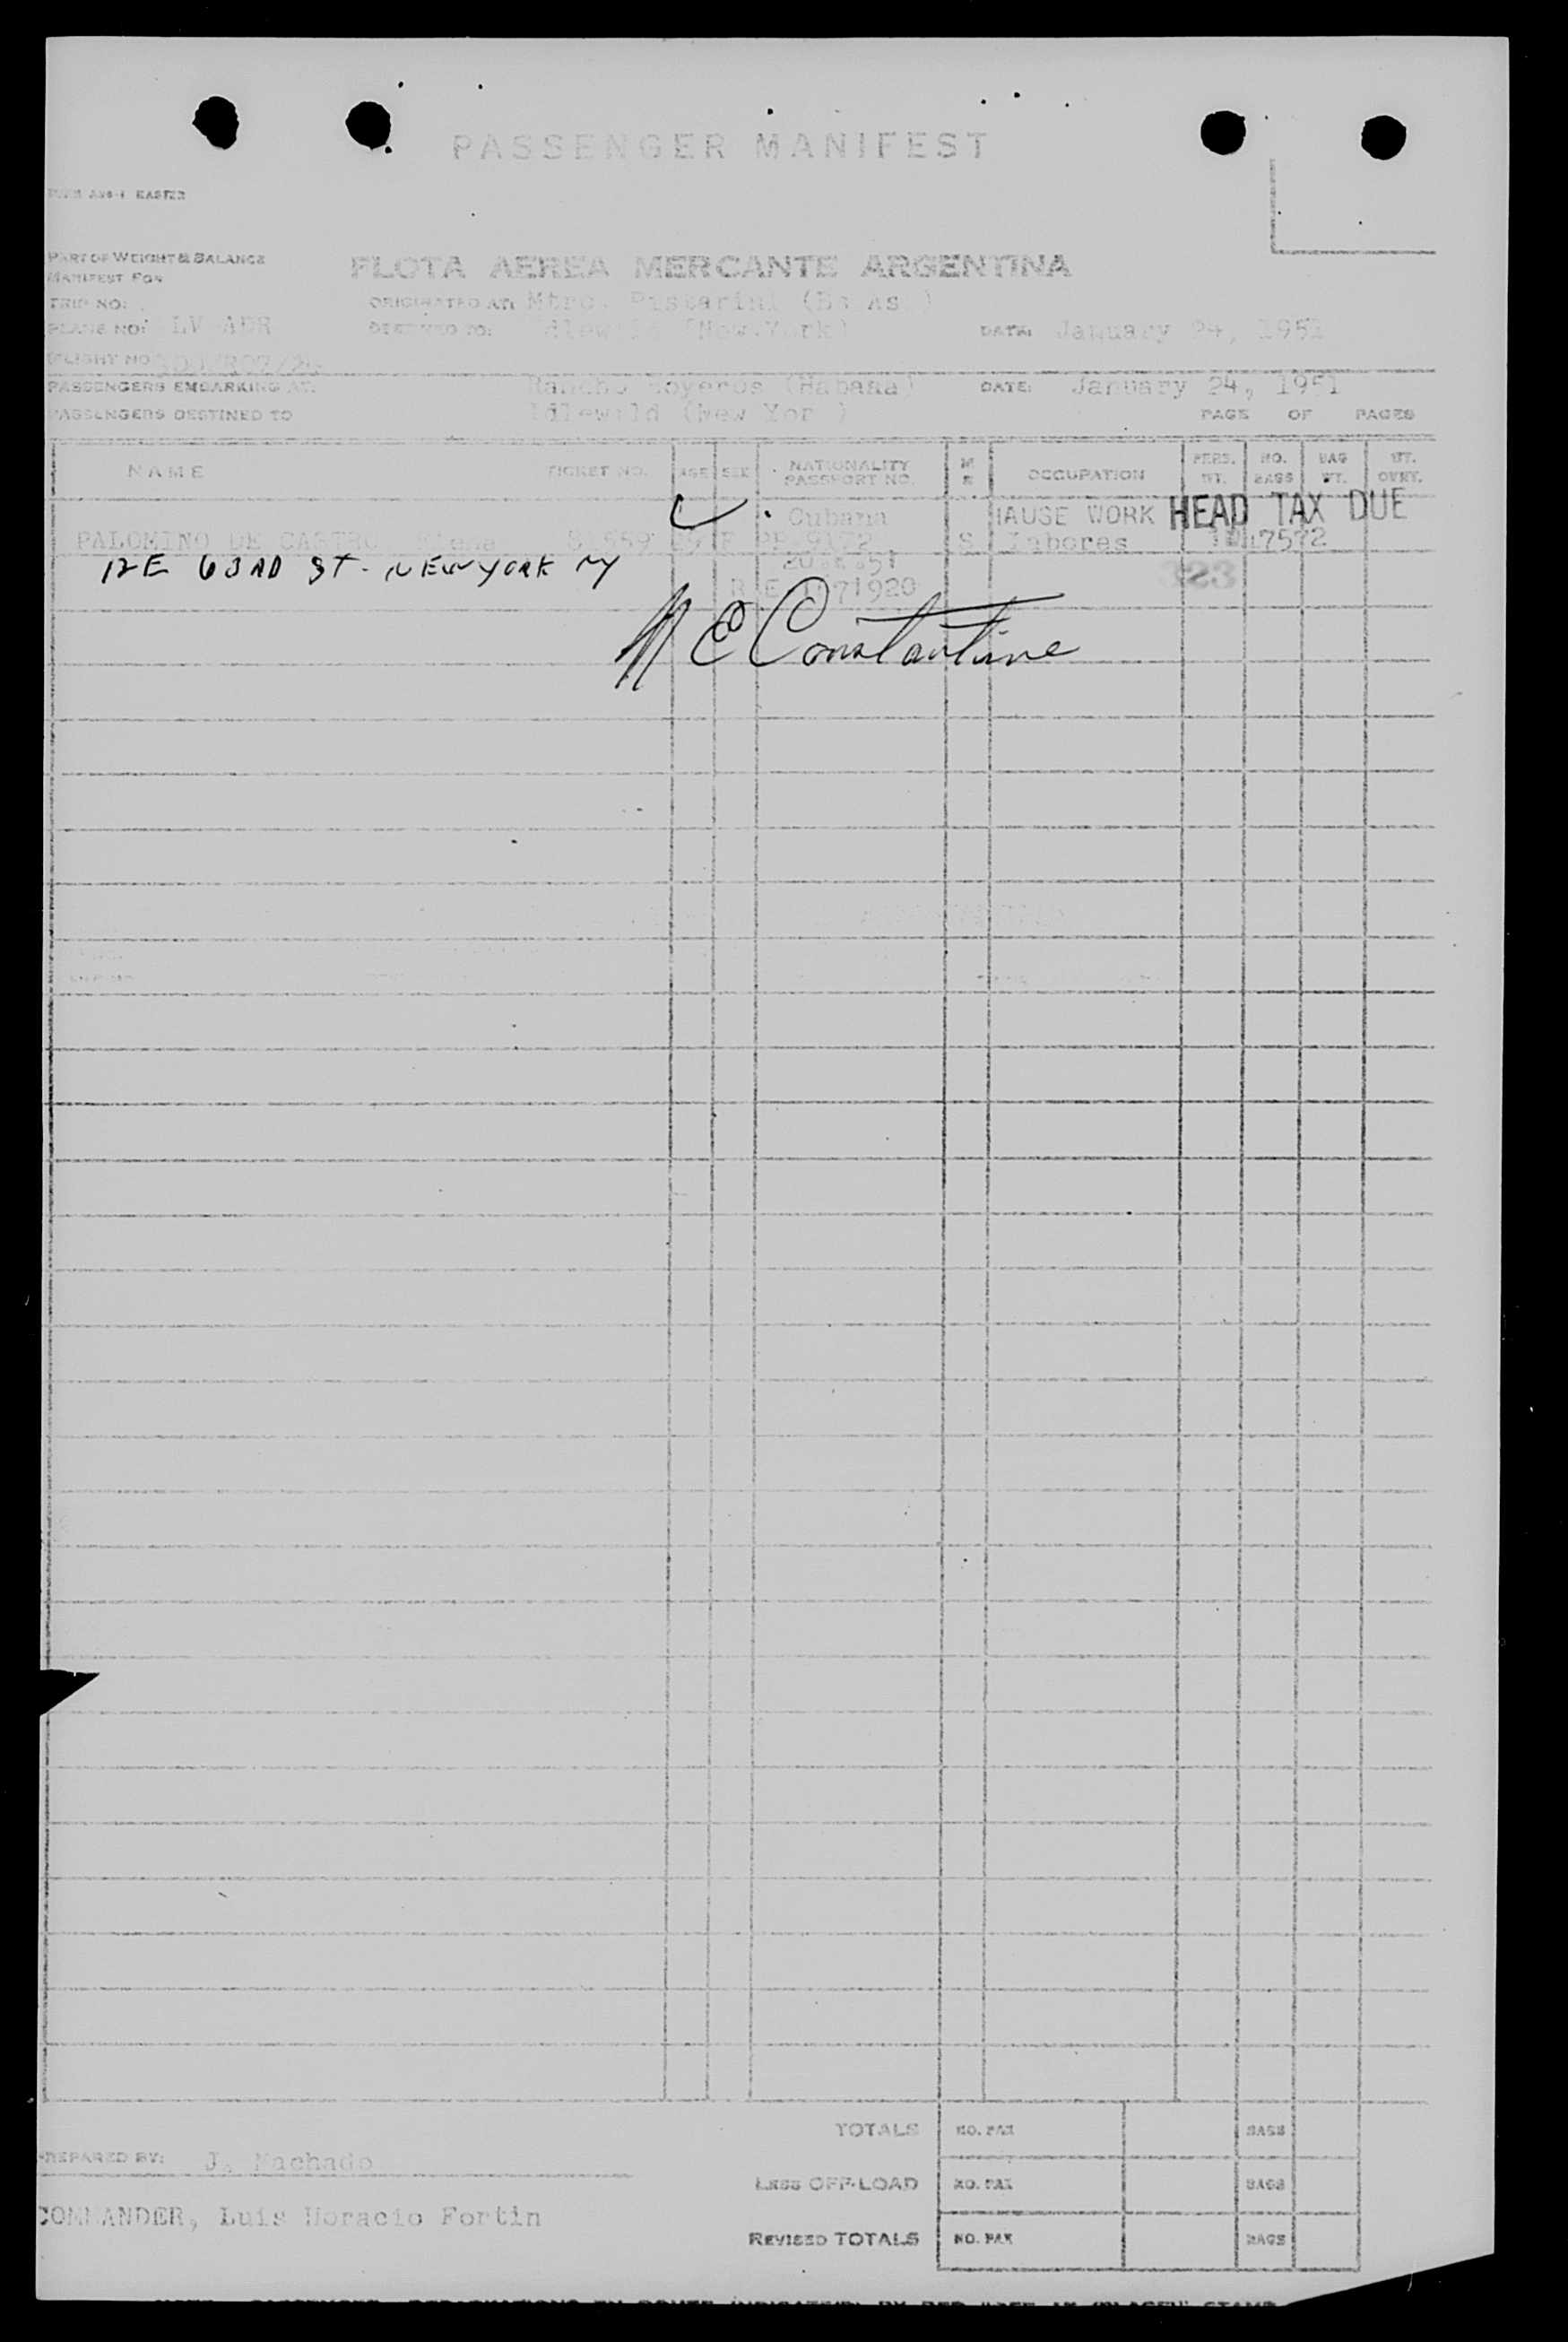 PASSENGER MANIFEST
PART OF WEIGHT & BALANCE
MANIFEST FOR
FLOTA AEREA MERCANTE ARGENTINA
TRIP NO:
ORIGINATED AT: Mtro. Pistarini (Bs As )
PLANE NO: LV ADR
DESTINED TO: Idlewild (New York)
DATE: January 24, 1951
FLIGHT NO
PASSENGERS EMBARKING AT: Rancho Boyeros (Habana)
DATE: January 24, 1951
PASSENGERS DESTINED TO Idlewild (New Yor )
PAGE OF PAGES
NAME TICKET NO. AGE SEX NATIONALITY PASSPORT NO. M S OCCUPATION PERS. WT. NO. BAGS BAG WT. WT. OVRT.
Cubana HAUSE WORK HEAD TAX DUE
PALOMINO DE CASTRO F PP 9172 S Labores 17572
12 E 63RD ST. NEW YORK NY
323
N E Constantine
TOTALS NO. PAX BAGS
PREPARED BY: J. Machado
LESS OFF-LOAD NO. PAX BAGS
COMMANDER, Luis Horacio Fortin
REVISED TOTALS NO. PAX BAGS